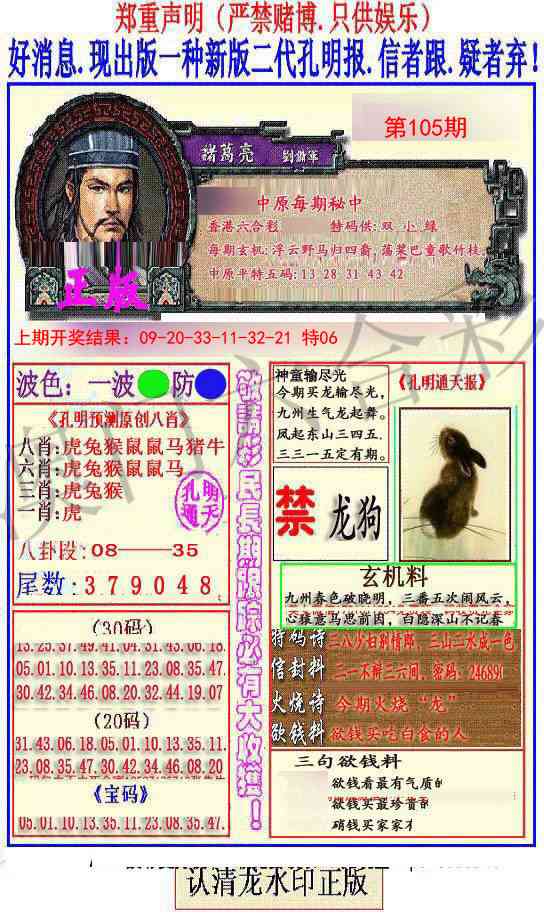 郑重声明（严禁赌博.只供娱乐）
好消息.现出版一种新版二代孔明报.信者跟.疑者弃！
第105期
諸葛亮
中原每期秘中
香港六合彩 特码供: 双 小 绿
每期玄机: 浮云野马归四裔, 荡桨巴童歌竹枝.
中原平特五码: 13 28 31 43 42
正版
上期开奖结果：09-20-33-11-32-21 特06
波色：一波 防
《孔明预测原创八肖》
八肖: 虎兔猴鼠鼠马猪牛
六肖: 虎兔猴鼠鼠马
三肖: 虎兔猴
一肖: 虎
孔明
通天
八卦段: 08——35
尾数: 3 7 9 0 4 8
(30码)
13.25.37.49.41.04.31.43.06.18.
05.01.10.13.35.11.23.08.35.47.
30.42.34.46.08.20.32.44.19.07
(20码)
31.43.06.18.05.01.10.13.35.11.
23.08.35.47.30.42.34.46.08.20
《宝码》
05.01.10.13.35.11.23.08.35.47.
敬請彩民長期跟踪必有大收獲！
神童输尽光
今期买龙输尽光，
九州生气龙起舞。
凤起东山三四五.
三三一五定有期。
《孔明通天报》
禁 龙狗
玄机料
九州春色破晓明，三番五次闹风云，
心猿意马思前因，白隐深山不记春
特码诗 三八少妇别情郎，三山二水成一色
信封料 二一不辩三六间，密码：24689
火烧诗 今期火烧“龙”
欲钱料 欲钱买吃白食的人
三句欲钱料
欲钱看最有气质的
欲钱买最珍贵的
硝钱买家家才
认清龙水印正版